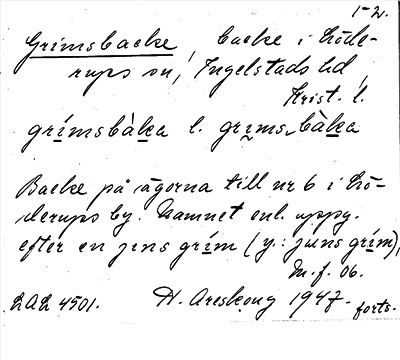 1-2.
Grimsbacke, backe i Löde-
rups sn, Ingelstads hd,
Krist. l.
grímsbàka l. grims bàka
Backe på ägorna till nr 6 i Lö-
derups by. Namnet enl. uppg.
efter en jens grím (y.: juns grím),
M.f. 06.
LAL 4501. H. Areskoug 1947. forts.